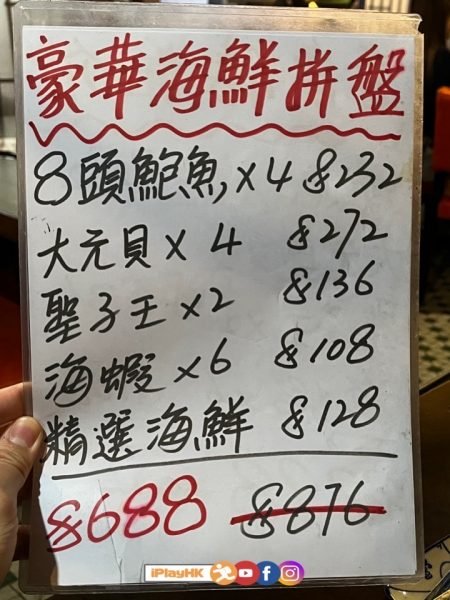 豪華海鮮拼盤
8頭鮑魚 x 4 $232
大元貝 x 4 $272
聖子王 x 2 $136
海蝦 x 6 $108
精選海鮮 $128
$688 $876
iPlayHK